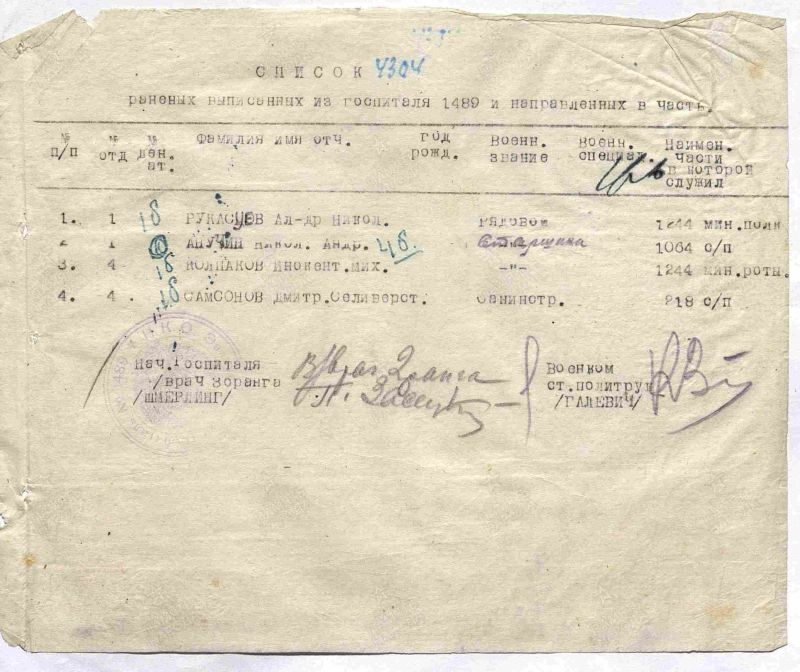 СПИСОК 4304
раненых выписанных из госпиталя 1489 и направленных в часть.
№ п/п № отд № ден. ат. Фамилия имя отч. год рожд. военн. звание военн. специал. Наимен. части в которой служил
1. 1 18 Ал-др Никол. Рядовой 1244 мин.полк
2 1 АПУЧИН Никол. Андр. 48. Старшина 1064 с/п
3. 4 18 КОЛПАКОВ Инокент.мих. -"- 1244 мин.роты.
4. 4 18 САМСОНОВ Дмитр.Селиверст. Санинстр. 218 с/п
Нач.Госпиталя Военком
/врач 3оранга в/врач 2 ранга ст.политрук
/ШМЕРЛИНГ/ /ГАЛЕВИЧ/